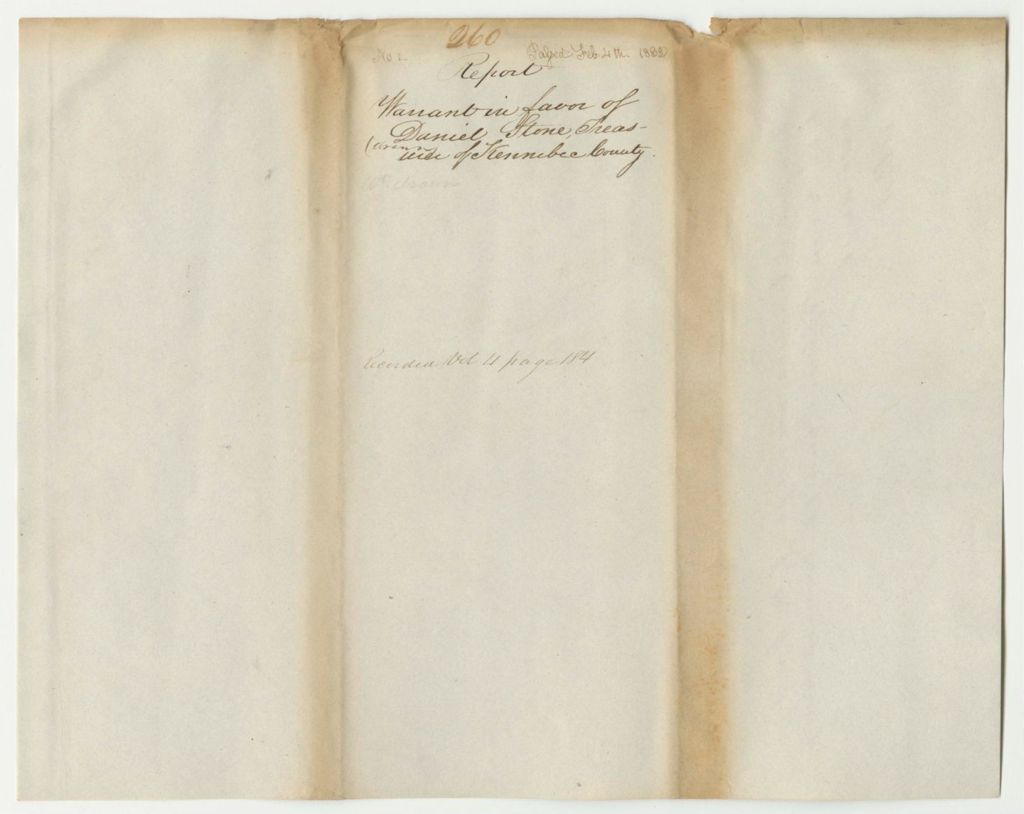 260
No 2 Passed Feb. 4th. 1832
Report
Warrant in favor of
Daniel Stone, Treas-
urer of Kennebec County.
Recorded Vol 4 page 184